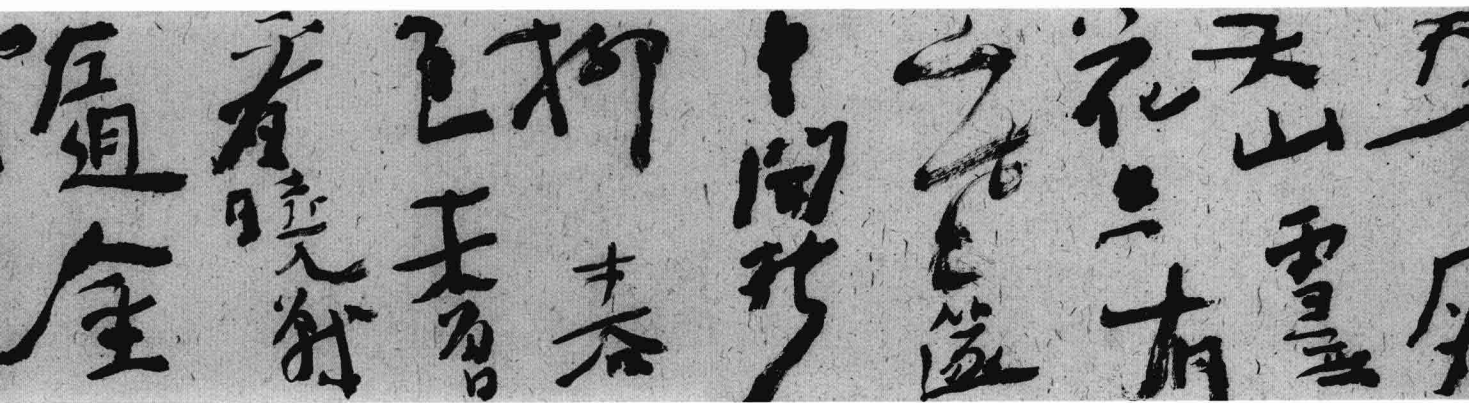 五月
天山雪无
花只有
寒篴
中聞折
柳春
色未曾
看曉戰
隨金